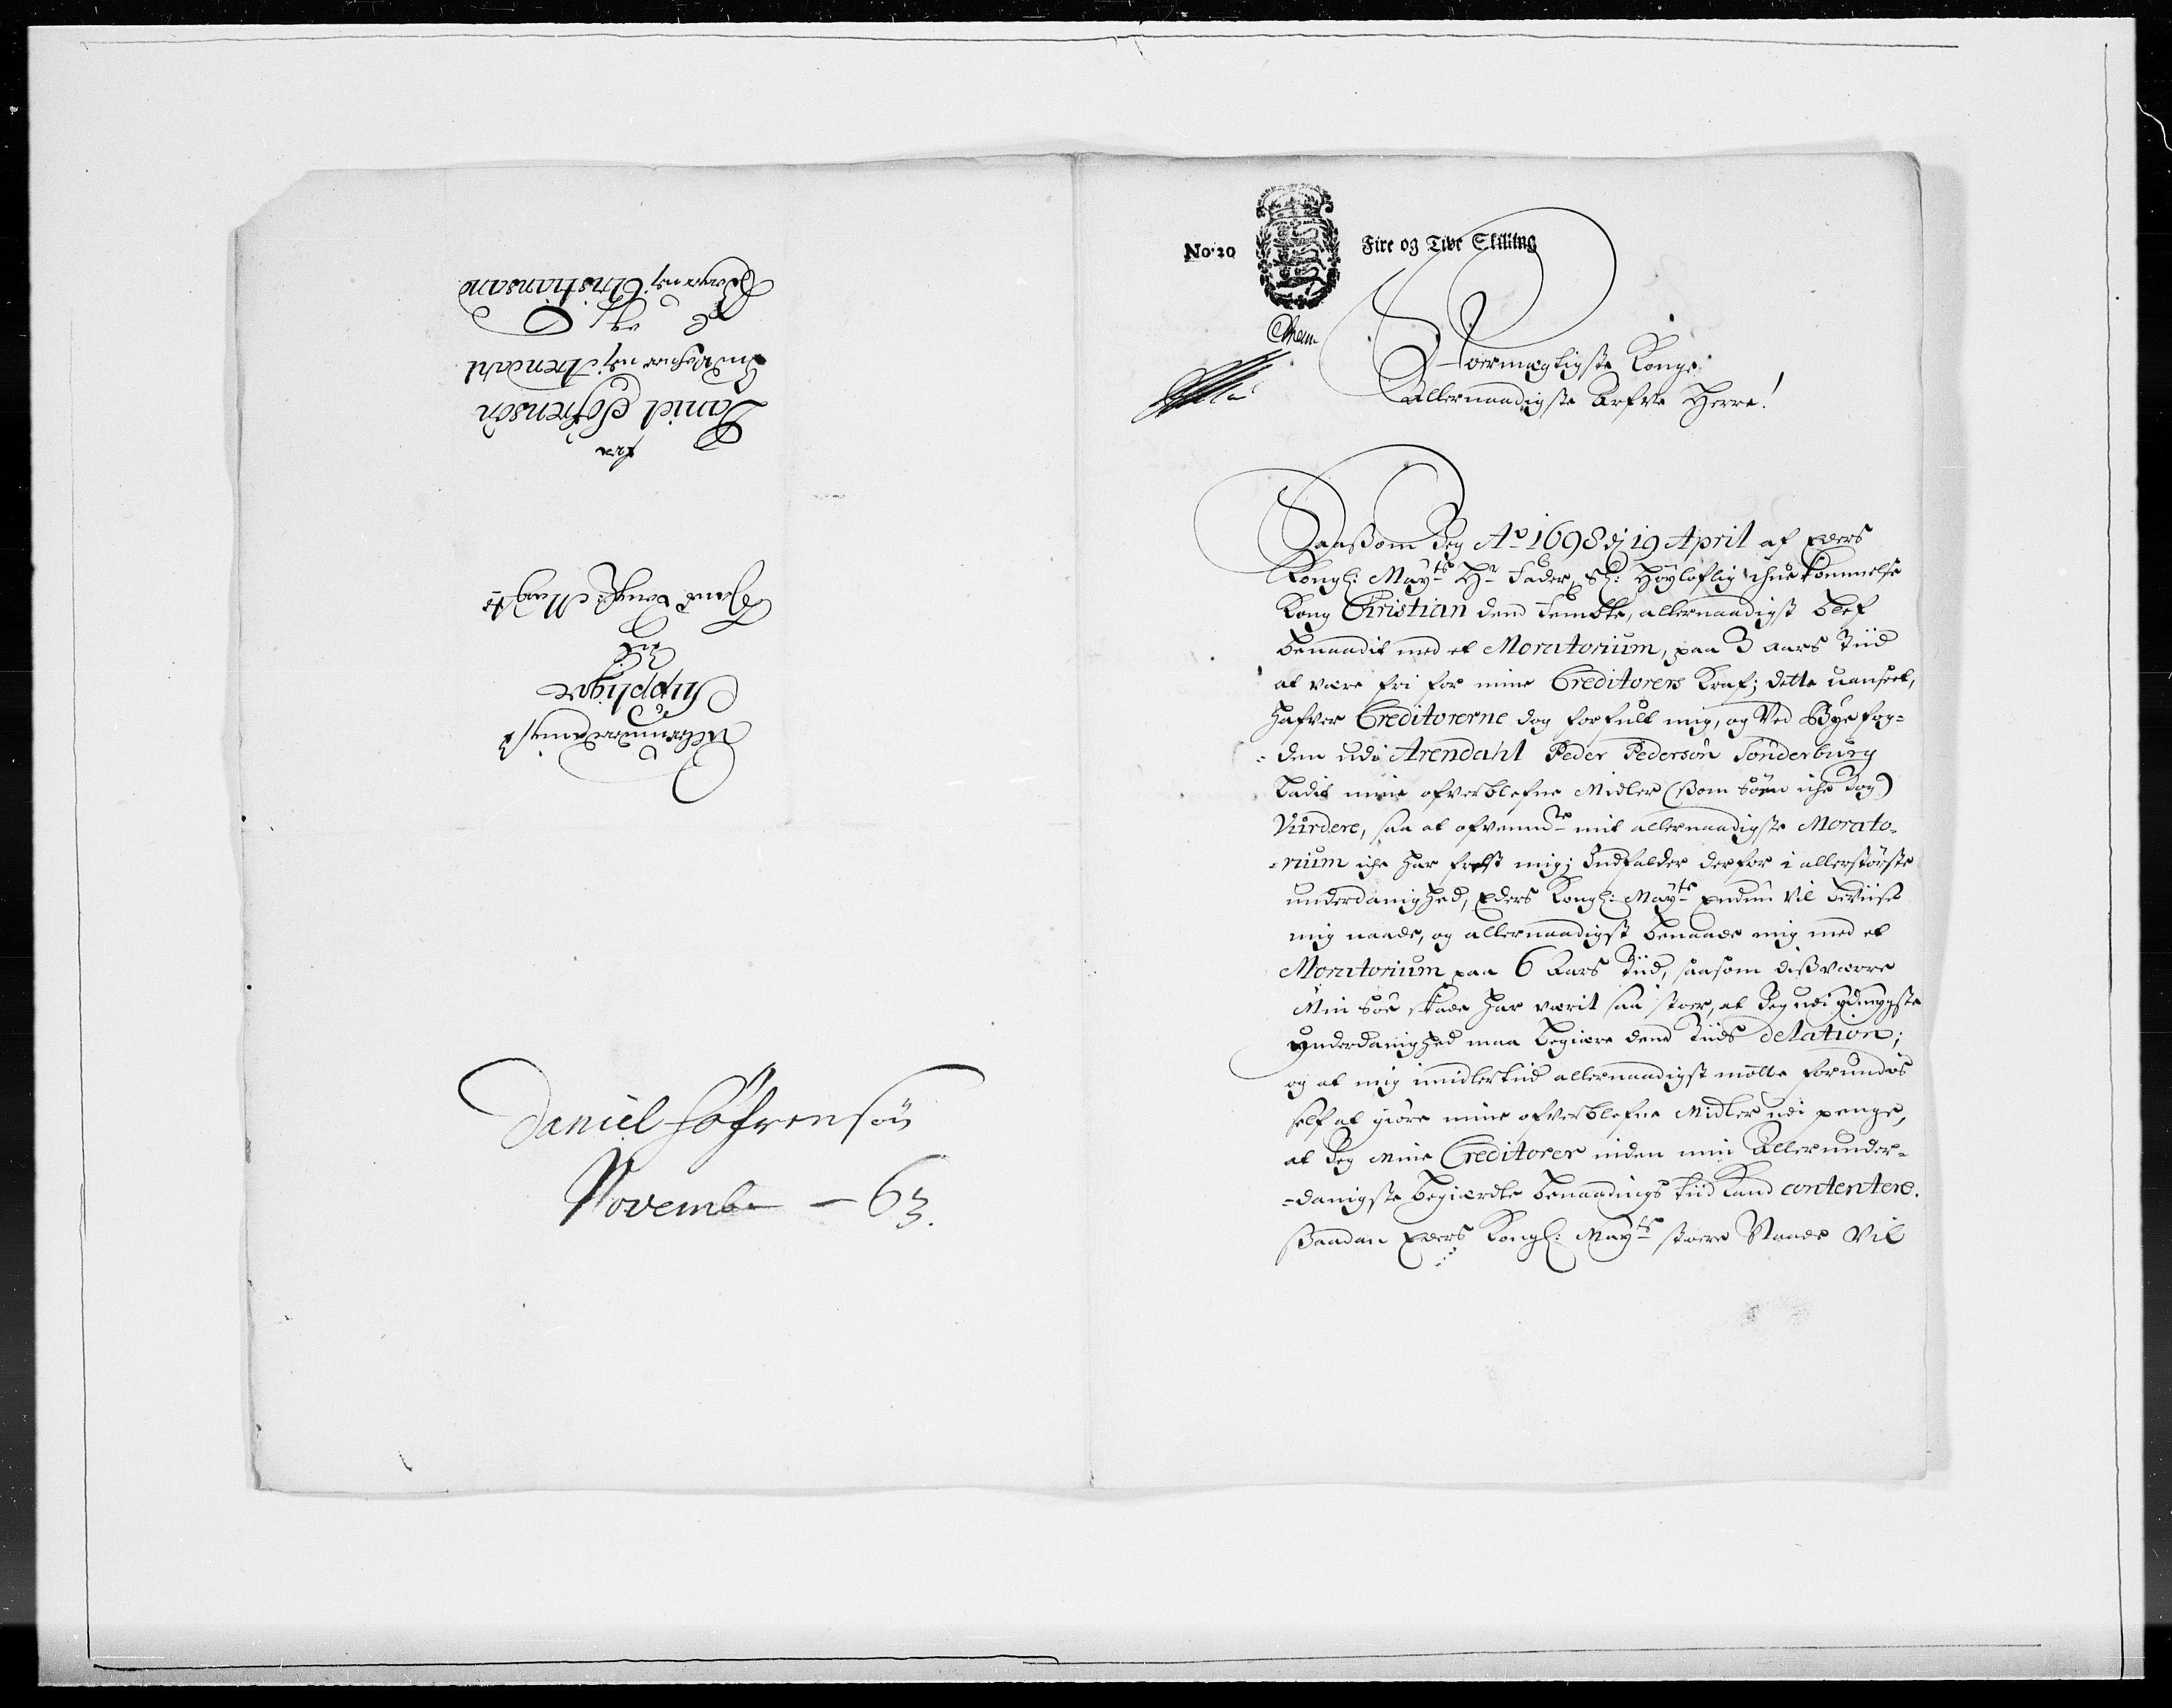 Allerunderdanigst
Supplique
Till
Hans Kongl: Mayts
fra
Daniel Søfrensøn
Indvohner udj Arendahl
og
Borger udj Christiansand
Daniel Søfrensøn
Novembr — 63.
No. 20 Fire og Tive Skilling
Stormægtigste Konge
Allernaadigste Arfve Herre!
Saasom Jeg Ao 1698 dj 19 April af Eders
Kongl: Mayts Hr Fader, Sl: Høyloflig ihukommelse
Kong Christian dend Femkte, allernaadigst blef
benaadit med et Moratorium, paa 3 aars Tiid
at være fri for mine Creditorers Kraf; dette uanseet,
hafver Creditorerne dog forfult mig, og Ved Byefog=
=den udi Arendahl Peder Pedersøn Sønderburg
ladit mine ofverblefne Midler (som Søen iche tog)
Vürdere, saa at ofvenmte mit allernaadigste Morato=
=rium iche har frelst mig; Indfalder derfor i allerstørste
underdanighed, Eders Kongl: Mayts endnu vil beviise
mig naade, og allernaadigst benaade mig med et
Moratorium paa 6 Aars Tiid, saasom dissværre
Min Søe skade har værit saa stoer, at Jeg udi ydmygste
Underdanighed maa begiære dend Tiids delation;
og at mig imidlertiid allernaadigst motte forundis
self at giøre mine ofverblefne Midler udi penge,
at Jeg Mine Creditorer inden min Allerunder=
=danigste begiærdte benaadings tiid kand contentere.
Saadan Eders Kongl: Mayts stoere Naade Vil